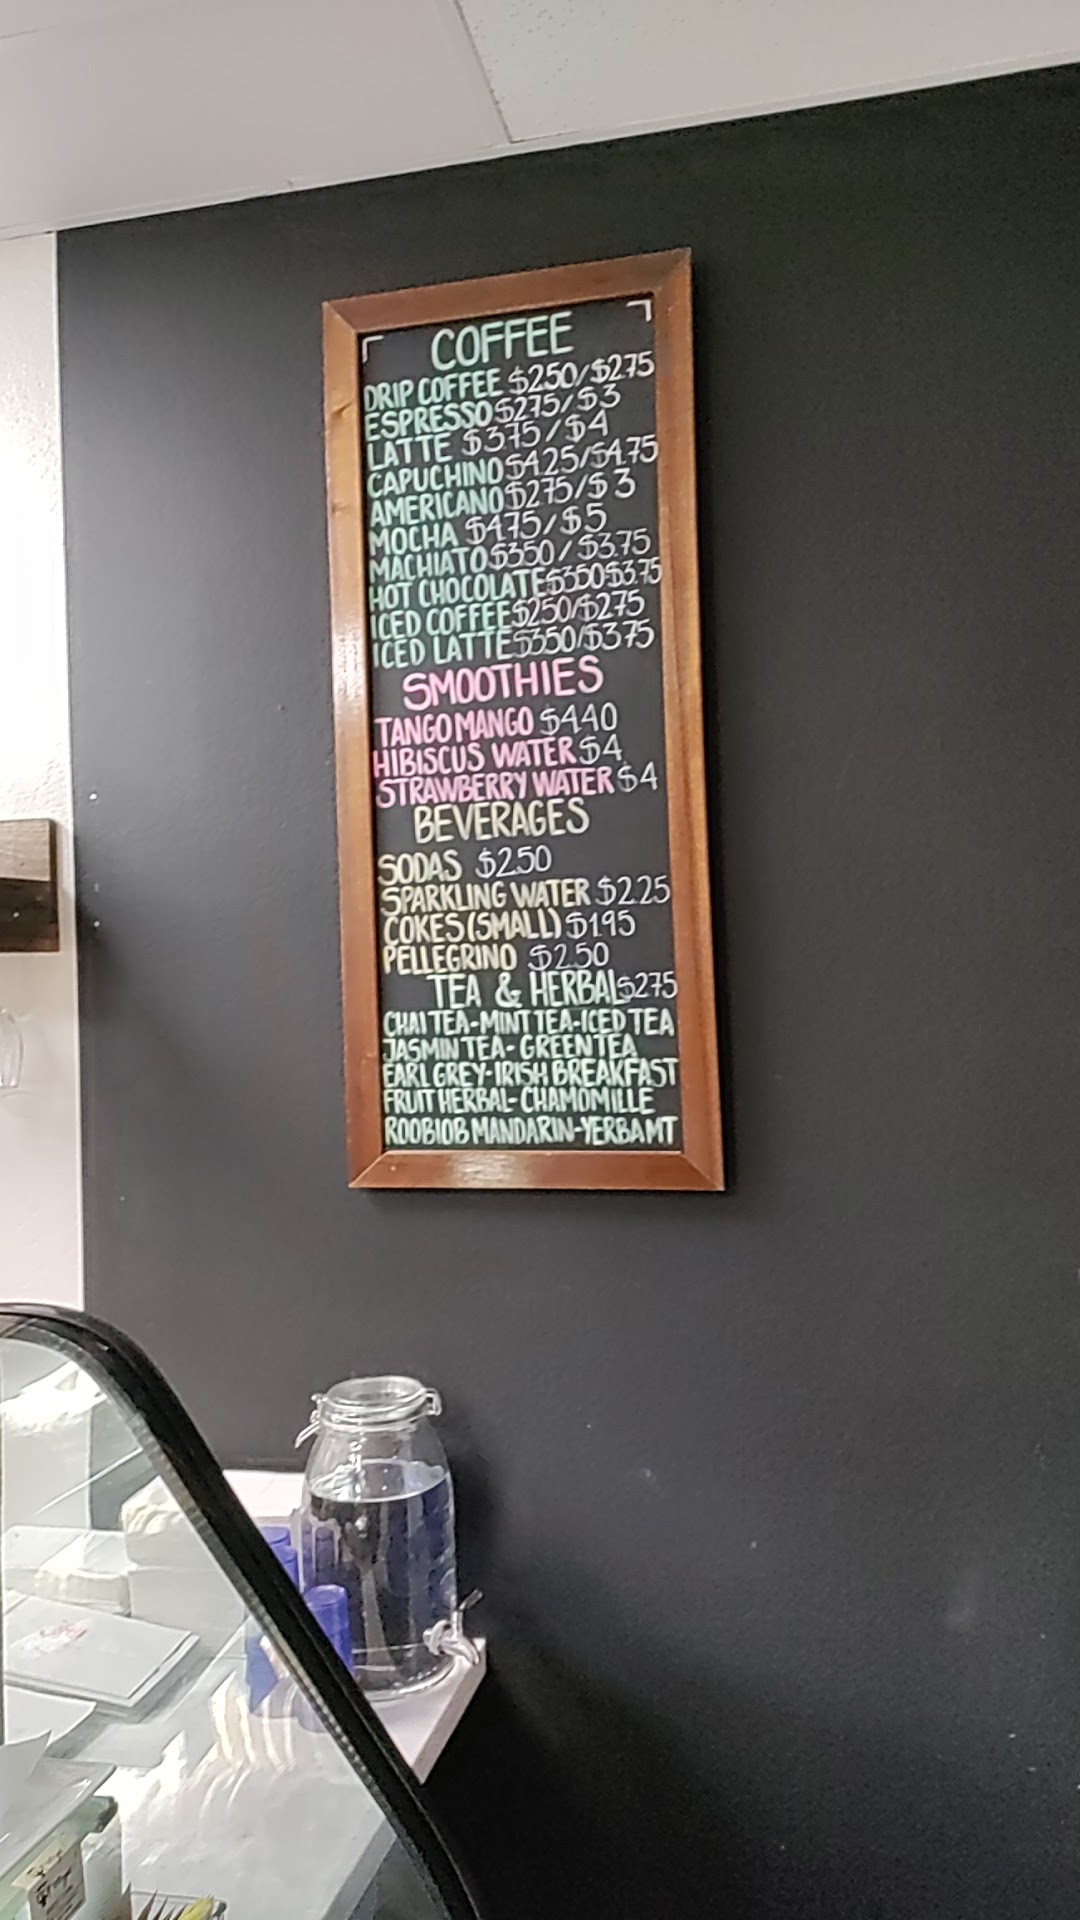 COFFEE
DRIP COFFEE $250/$275
ESPRESSO $275/$3
LATTE $375/$4
CAPUCHINO $425/$4.75
AMERICANO $275/$3
MOCHA $475/$5
MACHIATO $350/$3.75
HOT CHOCOLATE $350$3.75
ICED COFFEE $250/$275
ICED LATTE $350/$375
SMOOTHIES
TANGO MANGO $440
HIBISCUS WATER $4
STRAWBERRY WATER $4
BEVERAGES
SODAS $250
SPARKLING WATER $2.25
COKES (SMALL) $1.95
PELLEGRINO $2.50
TEA & HERBAL $275
CHAI TEA-MINT TEA-ICED TEA
JASMIN TEA-GREEN TEA
EARL GREY-IRISH BREAKFAST
FRUIT HERBAL-CHAMOMILLE
ROOBIOB MANDARIN-YERBA MT